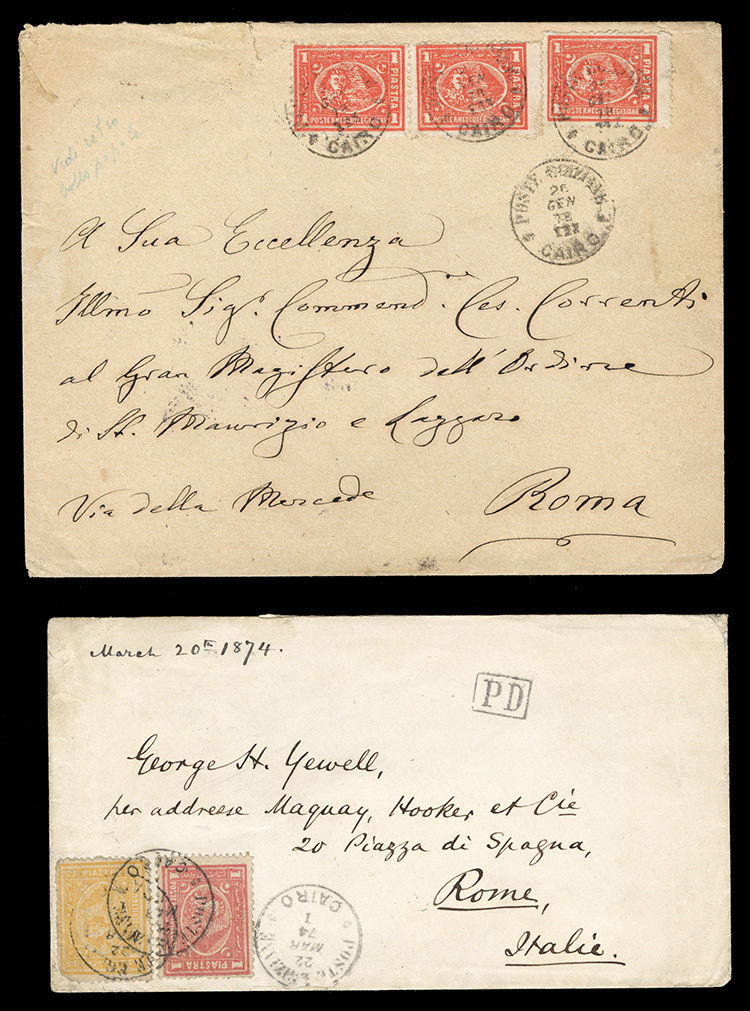 1 PIASTRA 1
POSTE KHEDEUIE EGIZIANE
1 PIASTRA 1
POSTE KHEDEUIE EGIZIANE
1 PIASTRA 1
POSTE KHEDEUIE EGIZIANE
CAIRO
CAIRO
CAIRO
Vedi retro
POSTE EGIZIANE
26
GEN
78
CAIRO
A Sua Eccellenza
Illmo Sigr. Commend. Ces. Correnti
al Gran Magistero dell'Ordine
di St. Maurizio e Lazzaro
Via della Mercede Roma
March 20th 1874.
PD
George H. Yewell,
per addresse Maquay, Hooker et Cie
20 Piazza di Spagna,
Rome,
Italie.
1 PIASTRA 1
POSTE EGIZIANE
CAIRO
22
MAR
74